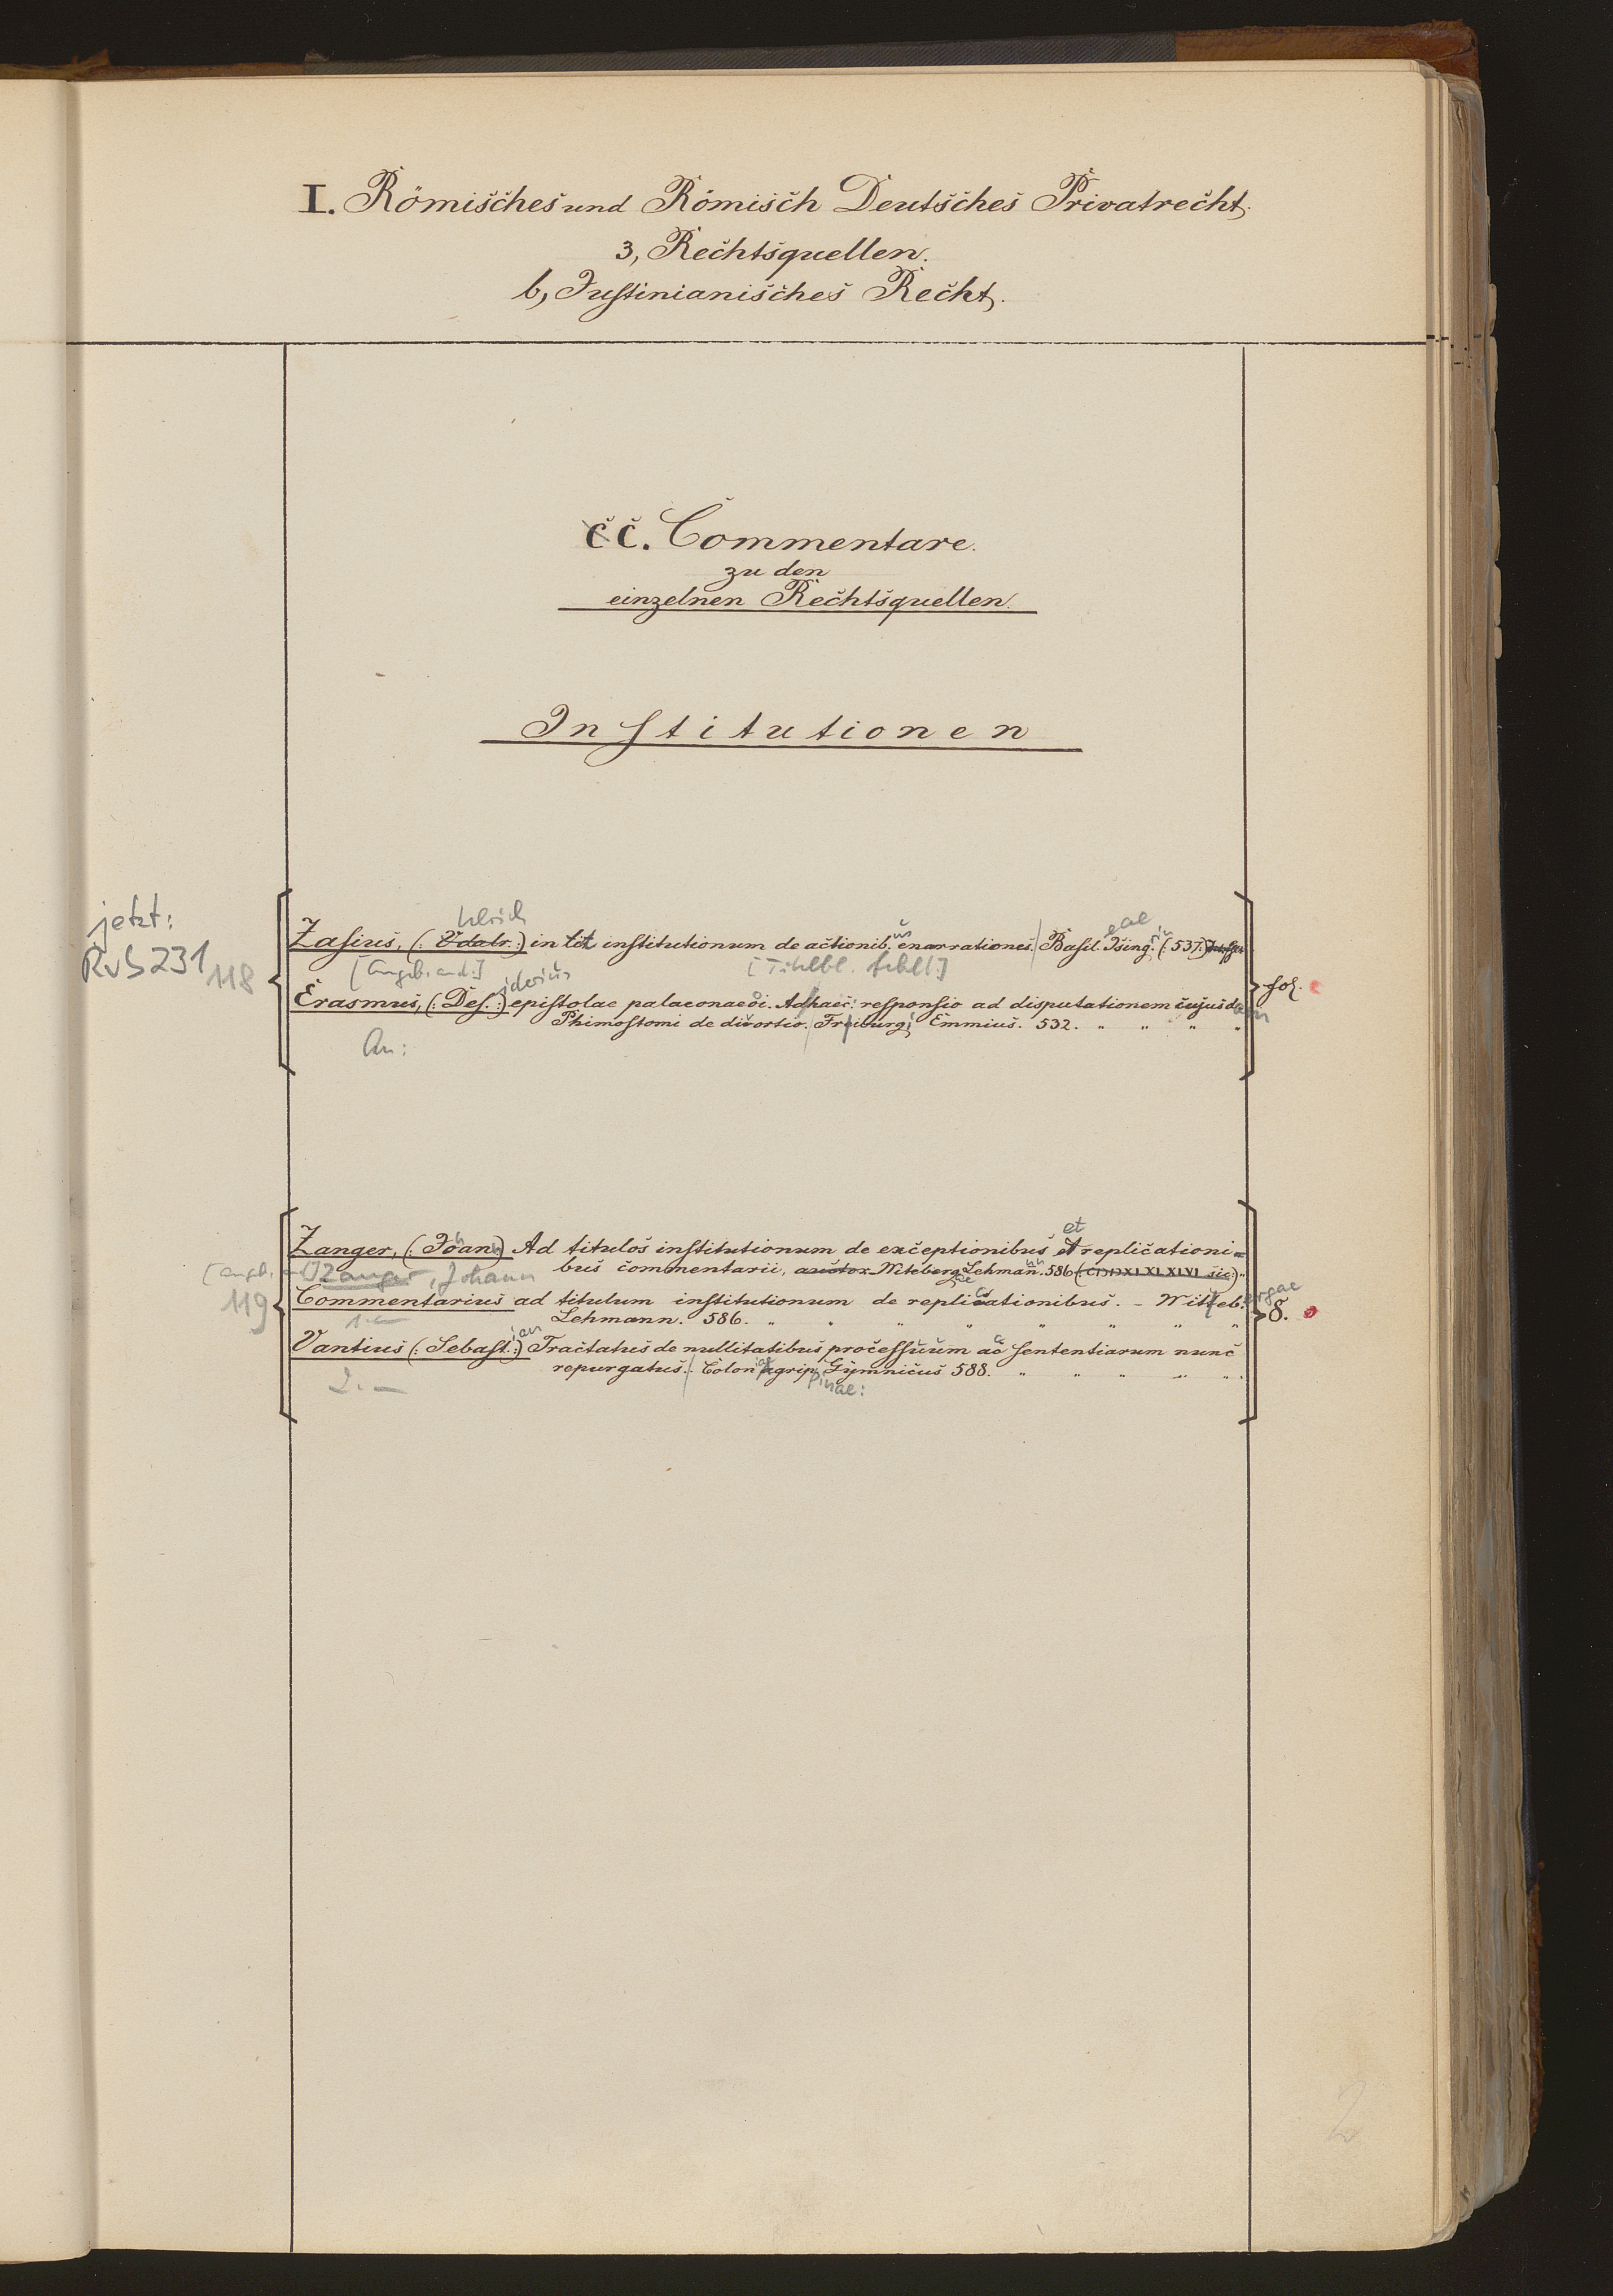 I. Römisches und Römisch Deutsches Privatrecht.
3, Rechtsquellen.
b, Justinianisches Recht.
cc. Commentare.
zu den
einzelnen Rechtsquellen.
Institutionen
jetzt:
RvS 231
118
Ulrich
Zasius, (: Udalr. :) in tit institutionum de actionib. enarrationes. Basil. Ising. (: 537.)
[Angeb. an d:] [Titelbl. fehlt.]
Erasmus, (: Des. :) epistolae palaeonaeoi. Ad haec: responsio ad disputationem cujusdam
iderius
fol.
Phimostomi de divortio. Friburgi, Emmius. 532. " " " "
An:
et
Zanger, (: Johann) Ad titulos institutionum de exceptionibus et replicationi=
bus commentarii, auctor Witeberg. Lehmann. 586 (: CIƆIƆXLXLXLVI sic:) "
Zanger, Johann
119
Commentarius ad titulum institutionum de replicationibus. – Witteb. ergae
8.
Lehmann. 586. " " " " " " " "
1.–
Vantius (: Sebast. :) Tractatus de nullitatibus processuum ac sententiarum nunc
ian
repurgatus. Colon Agrip. Gymnicus 588. " " " " "
pinae:
2.–
2